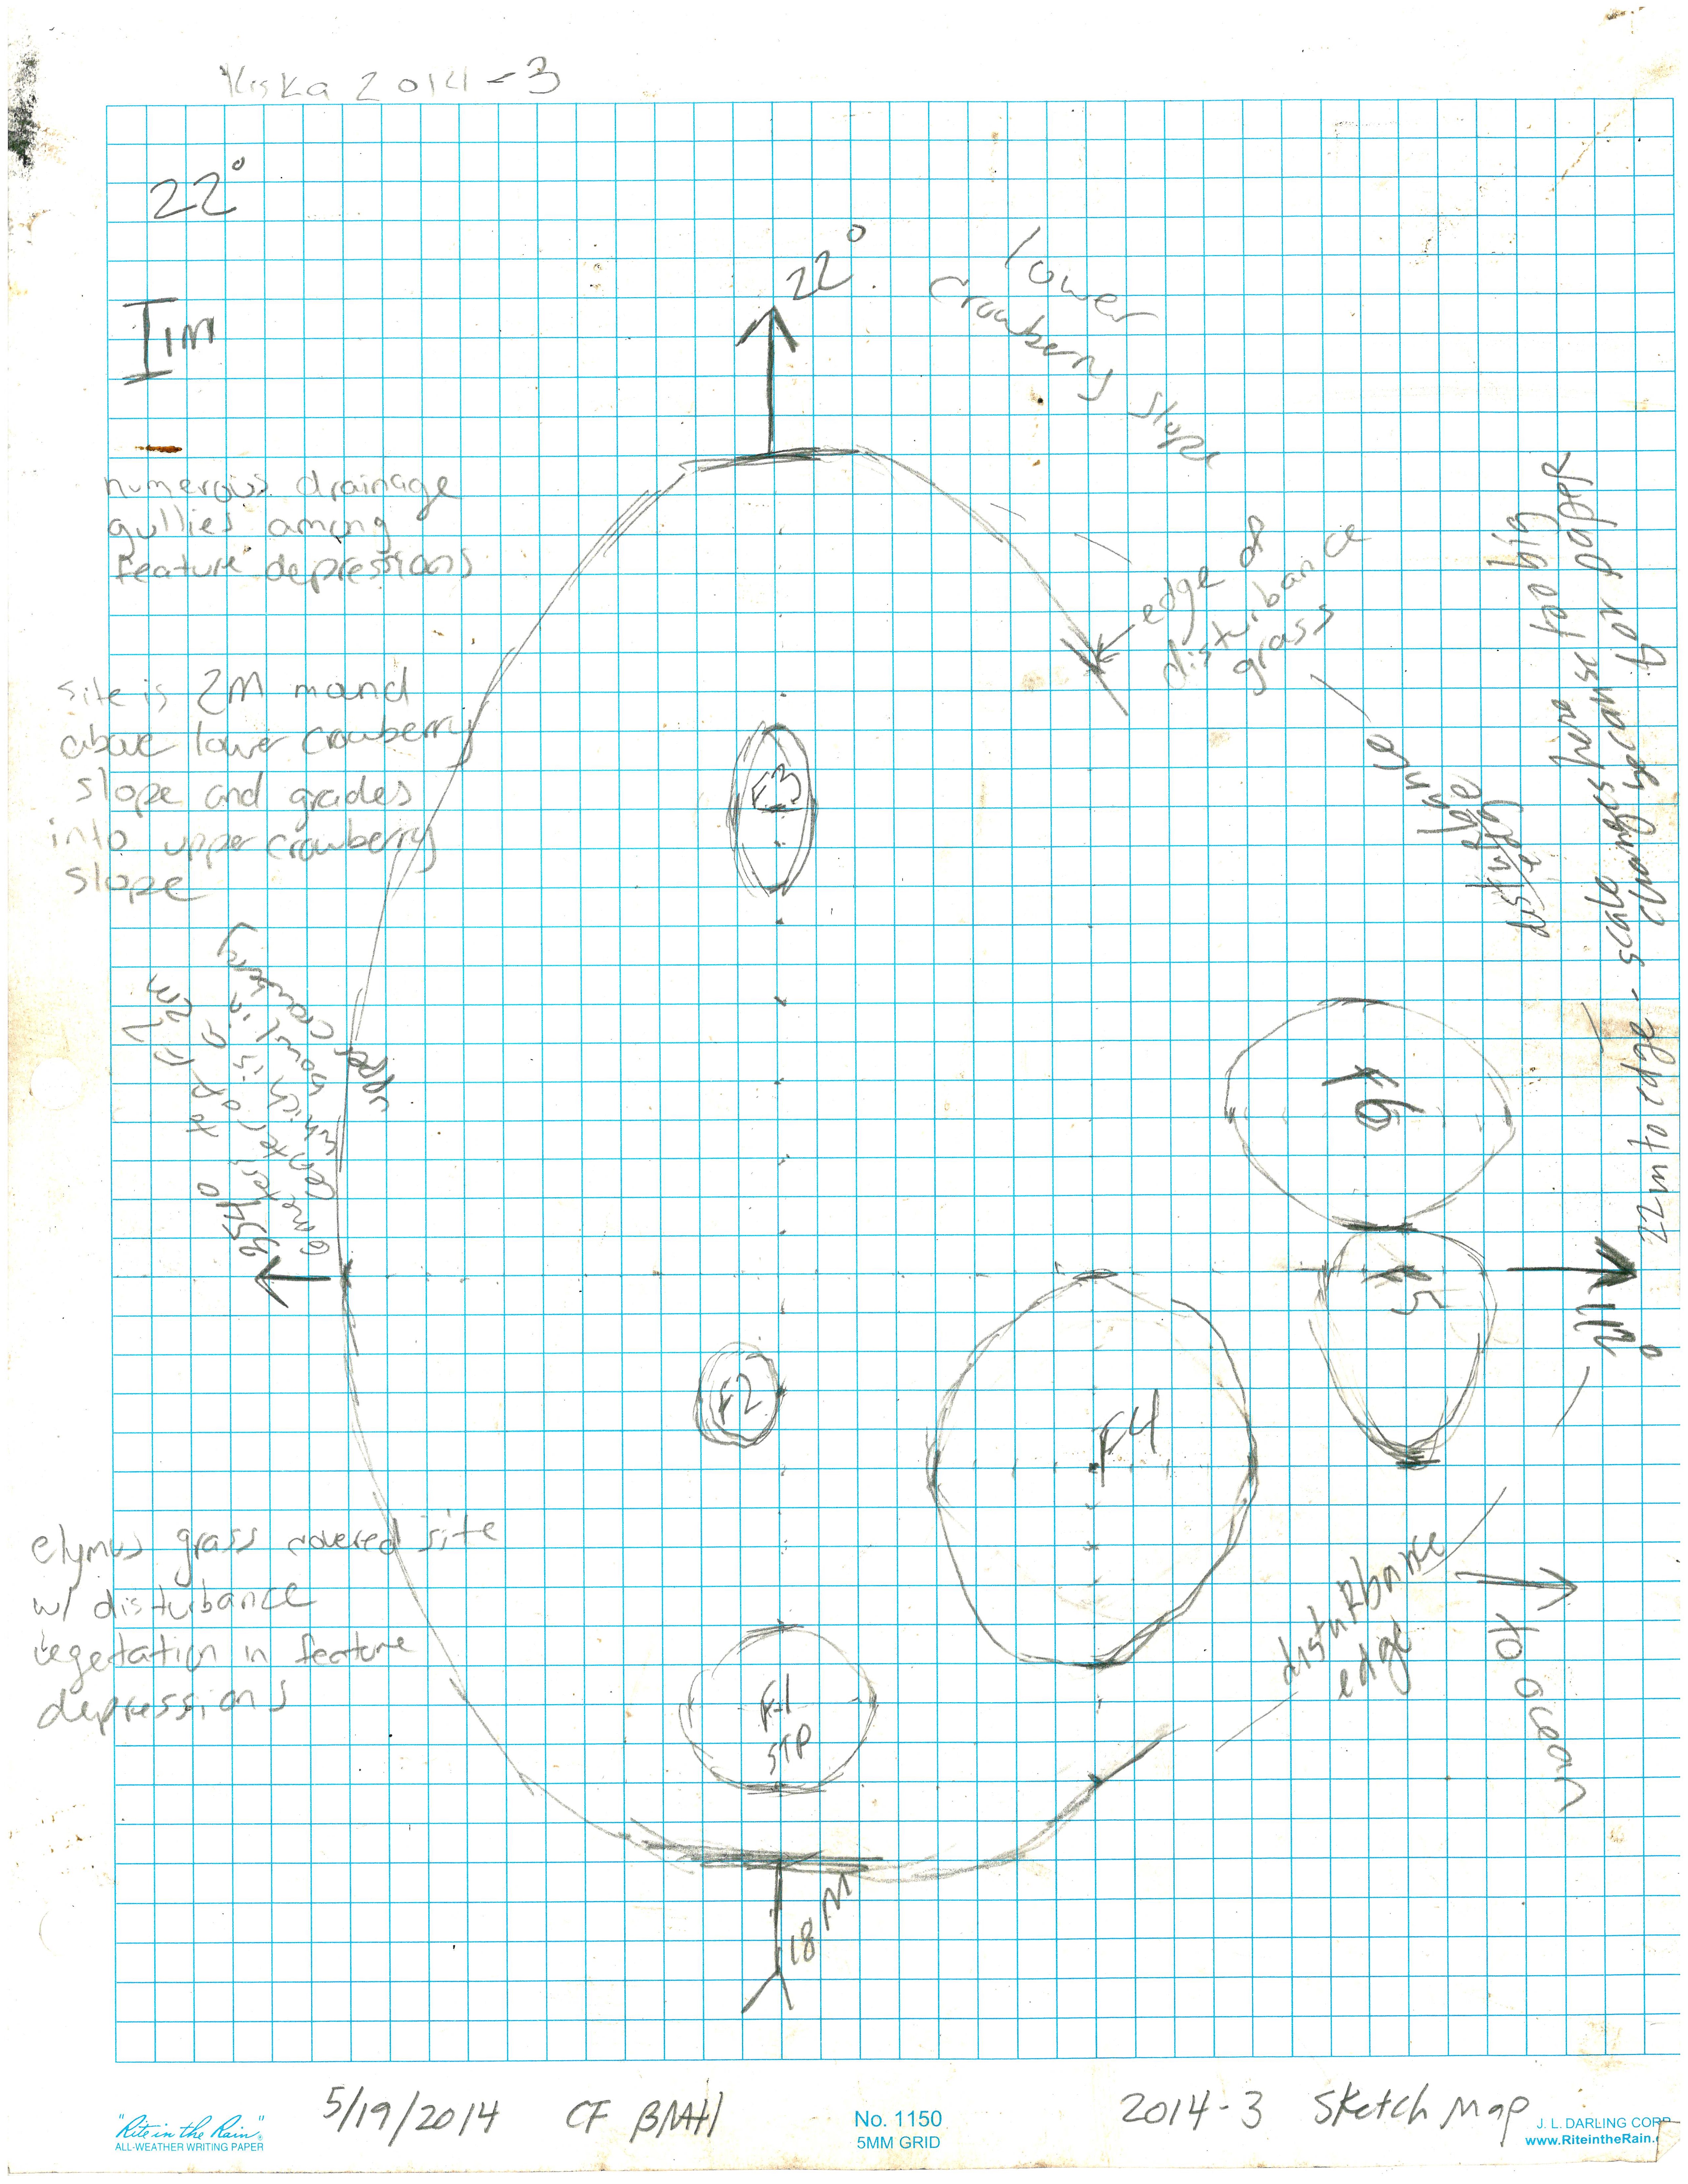 Kiska 2014-3
22°
1M
22°
lower
crowberry slope
numerous drainage
gullies among
feature depressions
edge of
disturbance
grass
site is 2M mound
above lower crowberry
slope and grades
into upper crowberry
slope
F3
disturbance
edge
22m to edge - scale changes here
changes because too big
for paper
upper crowberry
F6
F5
112°
F2
F4
elymus grass covered site
w/ disturbance
vegetation in feature
depressions
disturbance
edge
to ocean
F1
STP
18M
5/19/2014 CF
2014-3 Sketch Map
"Rite in the Rain"
ALL-WEATHER WRITING PAPER
No. 1150
5MM GRID
J. L. DARLING CORP
www.RiteintheRain.